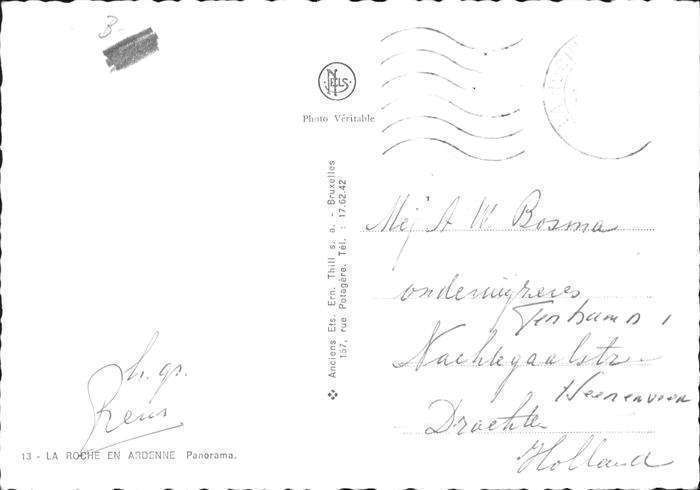 B.
NELS
Photo Véritable
Anciens Ets. Ern. Thill s. a. - Bruxelles
157, rue Potagère. Tél. : 17.62.42
Mej A W Bosma
onderwijzeres
Nachtegaalstr.
Heerenveen
Drachten
Holland
h. gr.
13 - LA ROCHE EN ARDENNE Panorama.